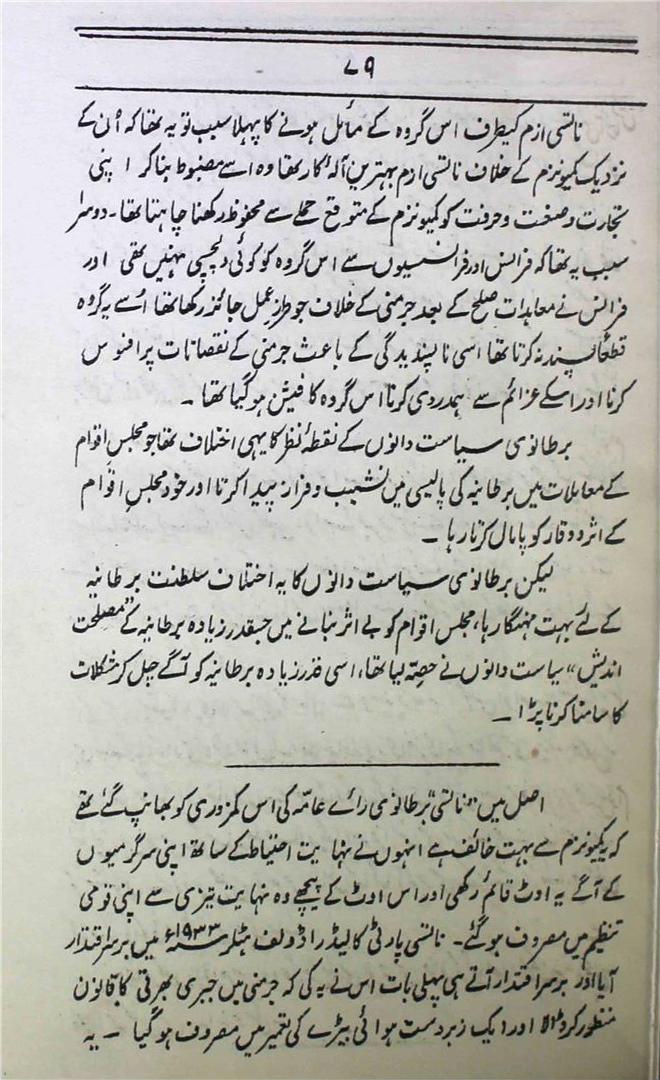 ۷۹
ناتسی ازم کیطرف اس گروہ کے مائل ہونے کا پہلا سبب تو یہ تھا کہ اُن کے
نزدیک کمیونزم کے خلاف ناتسی ازم بہترین آلۂ کار تھا وہ اسے مضبوط بنا کر اپنی
تجارت و صنعت و حرفت کو کمیونزم کے متوقع حملے سے محفوظ رکھنا چاہتا تھا۔ دوسرا
سبب یہ تھا کہ فرانس اور فرانسیسیوں سے اس گروہ کو کوئی دلچسپی نہیں تھی اور
فرانس نے معاہدات صلح کے بعد جرمنی کے خلاف جو طرزِ عمل جائز رکھا تھا اُسے یہ گروہ
قطعاً پسند نہ کرتا تھا اسی ناپسندیدگی کے باعث جرمنی کے نقصانات پر افسوس
کرنا اور اسکے عزائم سے ہمدردی کرنا اس گروہ کا فیشن ہو گیا تھا ۔
برطانوی سیاست دانوں کے نقطۂ نظر کا یہی اختلاف تھا جو مجلسِ اقوام
کے معاملات میں برطانیہ کی پالیسی میں نشیب و فراز پیدا کرتا اور خود مجلسِ اقوام
کے اثر و وقار کو پامال کرتا رہا ۔
لیکن برطانوی سیاست دانوں کا یہ اختلاف سلطنت برطانیہ
کے لئے بہت مہنگا رہا، مجلس اقوام کو بے اثر بنانے میں جسقدر زیادہ برطانیہ کے "مصلحت
اندیش" سیاست دانوں نے حصّہ لیا تھا، اسی قدر زیادہ برطانیہ کو آگے چل کر مشکلات
کا سامنا کرنا پڑا ۔
اصل میں "ناتسی" برطانوی رائے عامّہ کی اس کمزوری کو بھانپ گئے تھے
کہ یہ کمیونزم سے بہت خائف ہے انہوں نے نہایت احتیاط کے ساتھ اپنی سرگرمیوں
کے آگے یہ اوٹ قائم رکھی اور اس اوٹ کے پیچھے وہ نہایت تیزی سے اپنی قومی
تنظیم میں مصروف ہو گئے۔ ناتسی پارٹی کا لیڈر اڈولف ہٹلر ۱۹۳۳ء میں برسرِ اقتدار
آیا اور برسرِ اقتدار آتے ہی پہلی بات اس نے یہ کی کہ جرمنی میں جبری بھرتی کا قانون
منظور کر ڈالا اور ایک زبردست ہوائی بیڑے کی تعمیر میں مصروف ہو گیا ۔ یہ